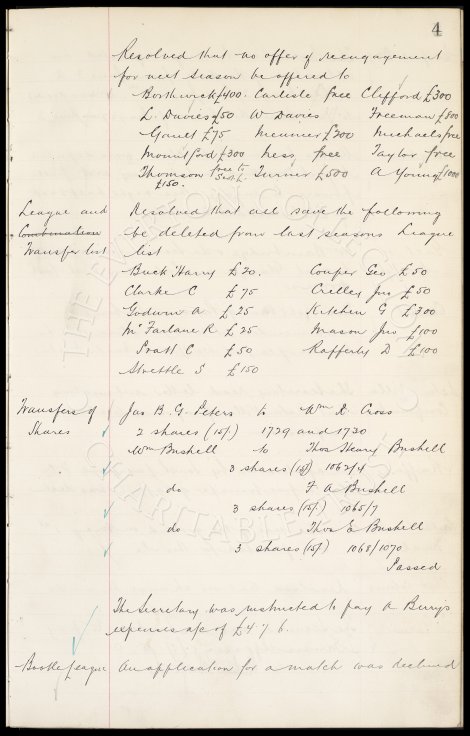 4
Resolved that no offer of reengagement
for next season be offered to
Borthwick £400. Carlisle free Clifford £300
L. Davies £50 W Davies Freeman £800
Gault £75 Meunier £300 Michaels free
Mountford £300 Ness free Taylor free
Thomson free to Scotch Turner £500 A Young £1000
£150.
League and Resolved that all save the following
Combination be deleted from last seasons League
Transfer list list
Buck Harry £20. Couper Geo £50
Clarke C £75 Crelley Jas £50
Godwin A £25 Kitchen G £300
McFarlane R £25 Mason Jas £100
Pratt C £50 Rafferty D £100
Strettle S £150
Transfers of Jas B. G. Peters to Wm R. Cross
Shares 2 shares (15/) 1729 and 1730
Wm Bushell to Thos Henry Bushell
3 shares (15/) 1062/4
do F. A Bushell
3 shares (15/) 1065/7
do Thos E Bushell
3 shares (15/) 1068/1070
Passed
The Secretary was instructed to pay A Berrys
expenses a/c of £4.7.6.
Bootle League An application for a match was declined
THE EVERTON CO
CHARITABLE